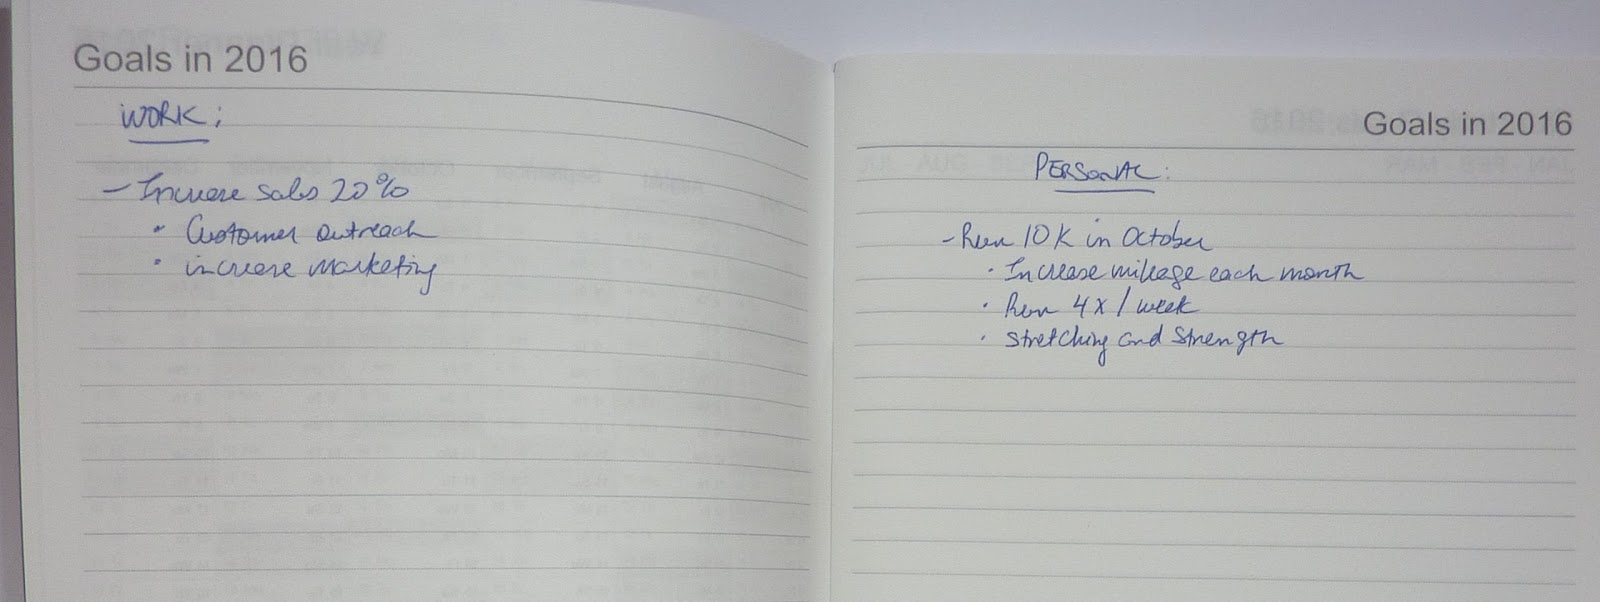 Goals in 2016
WORK:
- Increase sales 20%
• Customer outreach
• increase marketing
Goals in 2016
PERSONAL:
- Run 10K in October
• Increase mileage each month
• Run 4x / week
• Stretching and Strength